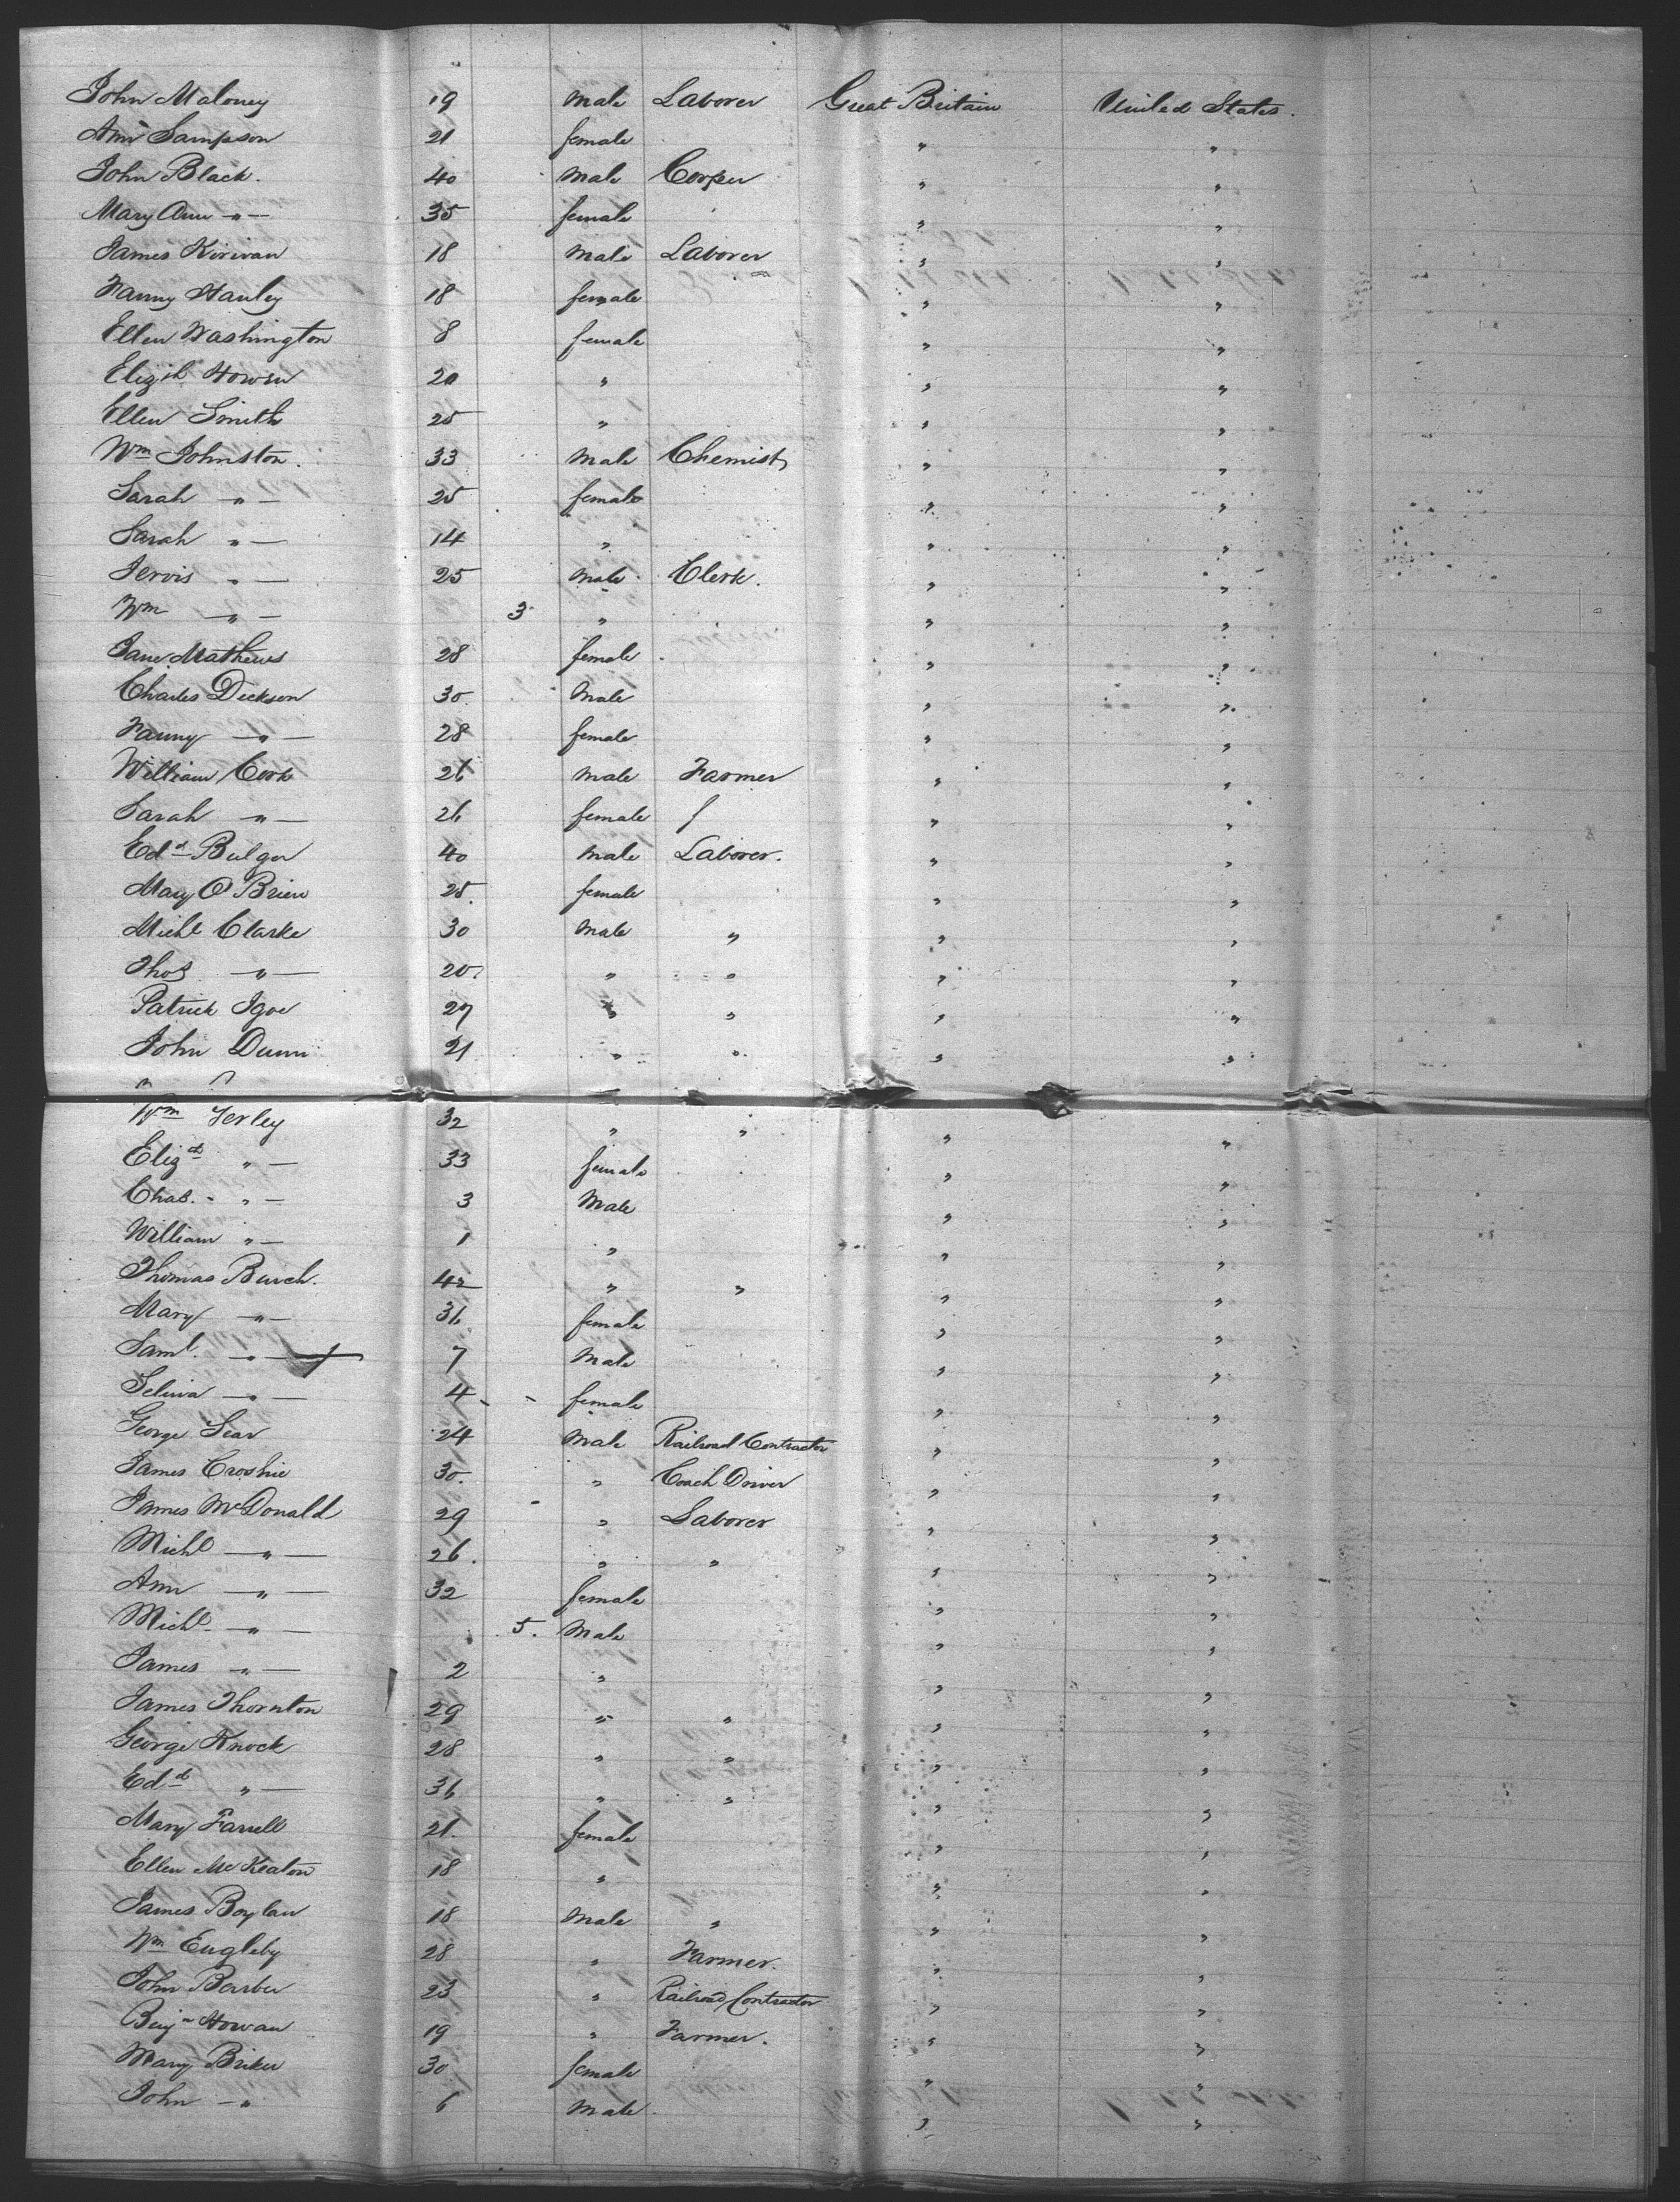 John Maloney 19 Male Laborer Great Britain United States.
Ann Sampson 21 female " "
John Black. 40 Male Cooper " "
Mary Ann -"- 35 female " "
James Kirivan 18 Male Laborer " "
Fanny Hanley 18 female " "
Ellen Washington 8 female " "
Elizth Howen 20 " " "
Ellen Smith 25 " " "
Wm Johnston. 33 Male Chemist " "
Sarah -"- 25 female " "
Sarah "- 14 " " "
Jervis -"- 25 Male Clerk. " "
Wm -"- 3 " " "
Jane Mathews 28 female " "
Charles Dickson 30. Male " "
Fanny -"- 28 female " "
William Cork 26 Male Farmer " "
Sarah -"- 26 female " "
Edd Bulger 40 Male Laborer. " "
Mary O'Brien 25. female " "
Michl Clarke 30 Male " " "
Thos -"- 20. " " " "
Patrick Igoe 27 " " " "
John Dunn 21 " " " "
Wm Ferley 32 " " " "
Elizth "- 33 female " "
Chas. "- 3 Male " "
William "- 1 " " "
Thomas Burch. 42 " " " "
Mary -"- 36 female " "
Saml. -"- 7 Male " "
Selina -"- 4 female " "
George Sear 24 Male Railroad Contractor " "
James Croshie 30. " Coach Driver " "
James McDonald 29 " Laborer " "
Michl -"- 26. " " " "
Ann -"- 32 female " "
Michl -"- 5. Male " "
James -"- 2 " " "
James Thornton 29 " " " "
George Knock 28 " " " "
Edd "- 36 " " " "
Mary Farrell 21. female " "
Ellen McKeaton 18 " " "
James Boylan 18 Male " " "
Wm Eugleby 28 " Farmer. " "
John Barber 23 " Railroad Contractor " "
Benjn Howan 19 " Farmer. " "
Mary Briker 30 female " "
John -" 6 Male. " "